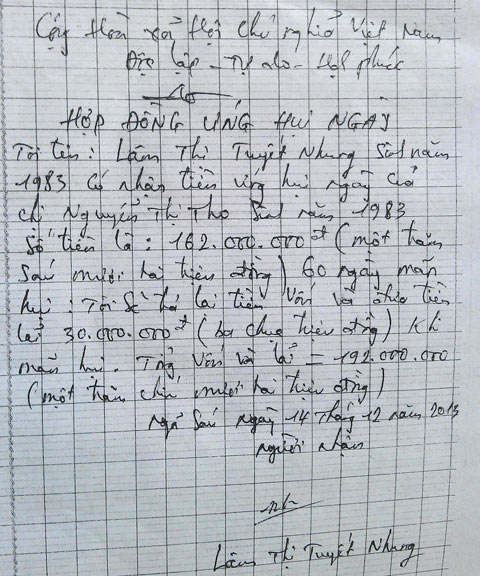 Cộng Hoà xả Hội chủ nghiả Việt Nam
Độc lập - Tự do - Hạnh phúc
HỚP ĐỒNG ỨNG HỤI NGÀY
Tôi tên: Lâm Thị Tuyết Nhung Sinh năm
1983 có nhận tiền ứng hụi ngày của
chị Nguyễn Thị Tho Sinh năm 1983
Số tiền là: 162.000.000đ (một trăm
Sáu mươi hai triệu đồng) 60 ngày mãn
hụi: Tôi Sẽ trả lại tiền Vốn và tiền
lải 30.000.000đ (ba chục triệu đồng) khi
mãn hụi. Tổng Vốn và lải = 192.000.000
(một trăm chín mươi hai triệu đồng)
Ngã Sáu ngày 14 tháng 12 năm 2013
người nhận
Lâm Thị Tuyết Nhung